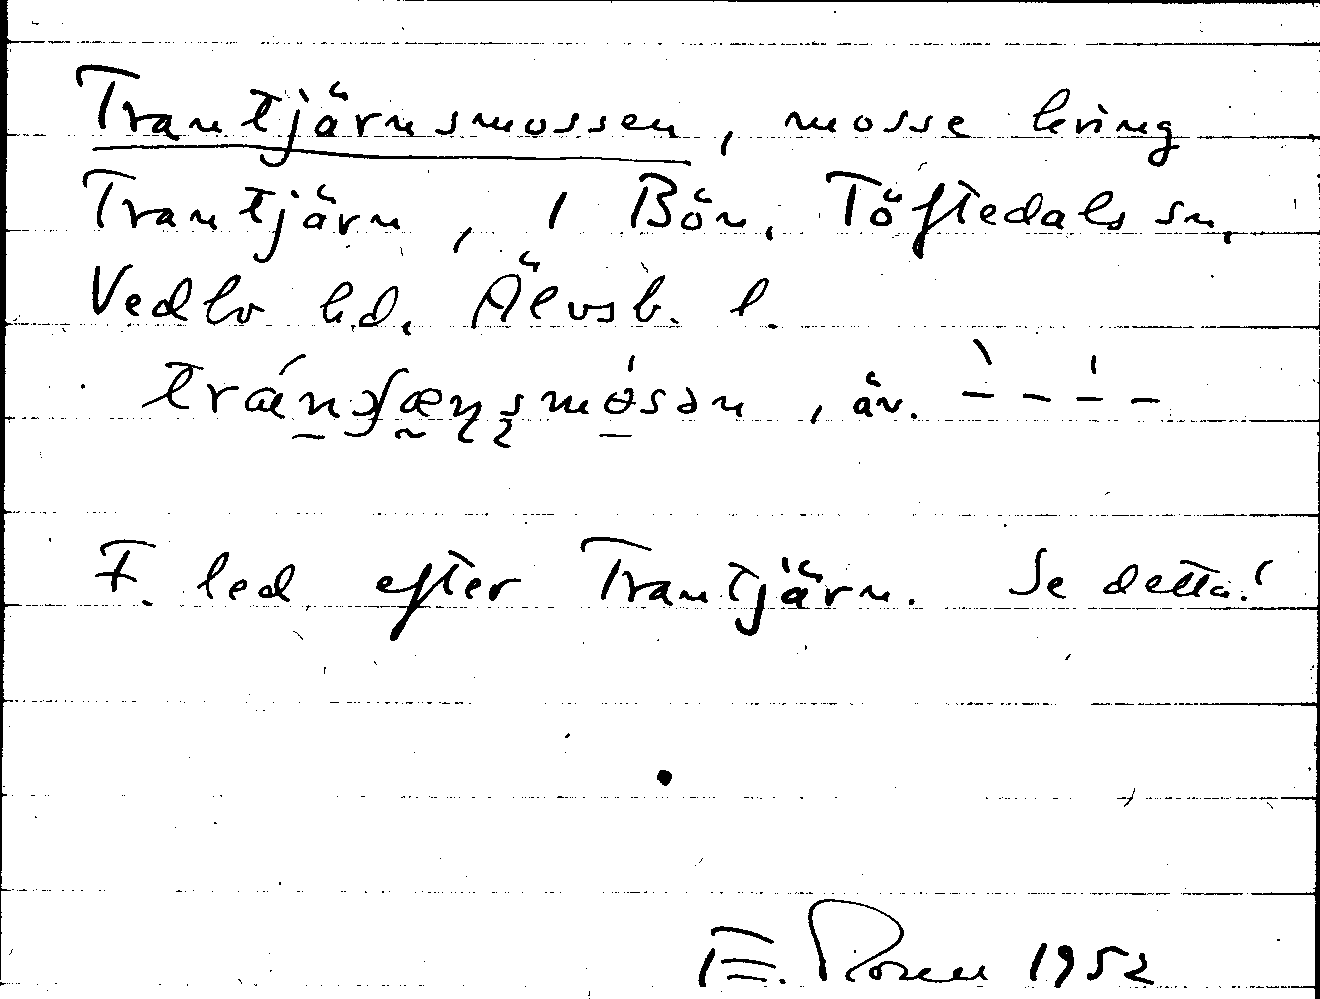 Trantjärnsmossen, mosse kring
Trantjärn, 1 Bön, Töftedals sn,
Vedbo hd, Älvsb. l.
, äv. – – – –
F. led efter Trantjärn. Se detta!
E. Rosell 1952